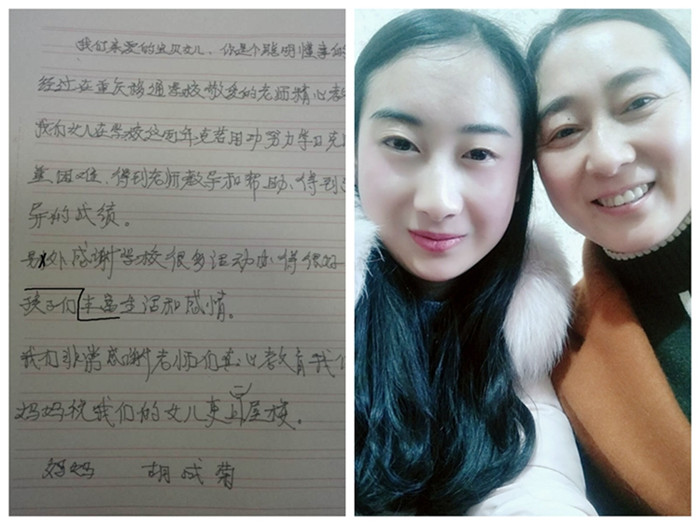 我们亲爱的宝贝女儿，你是个聪明懂事的
经过在重庆 通学校敬爱的老师精心
我的女儿在学校这两年克苦用功努力学习克
 困难，得到老师教导和帮助，得到
异的成绩。
另外感谢学校很多活动办得很好
孩子们丰富生活和感情。
我们非常感谢老师们真心教育我们
妈妈祝我们的女儿更上一层楼。
妈妈 胡成菊